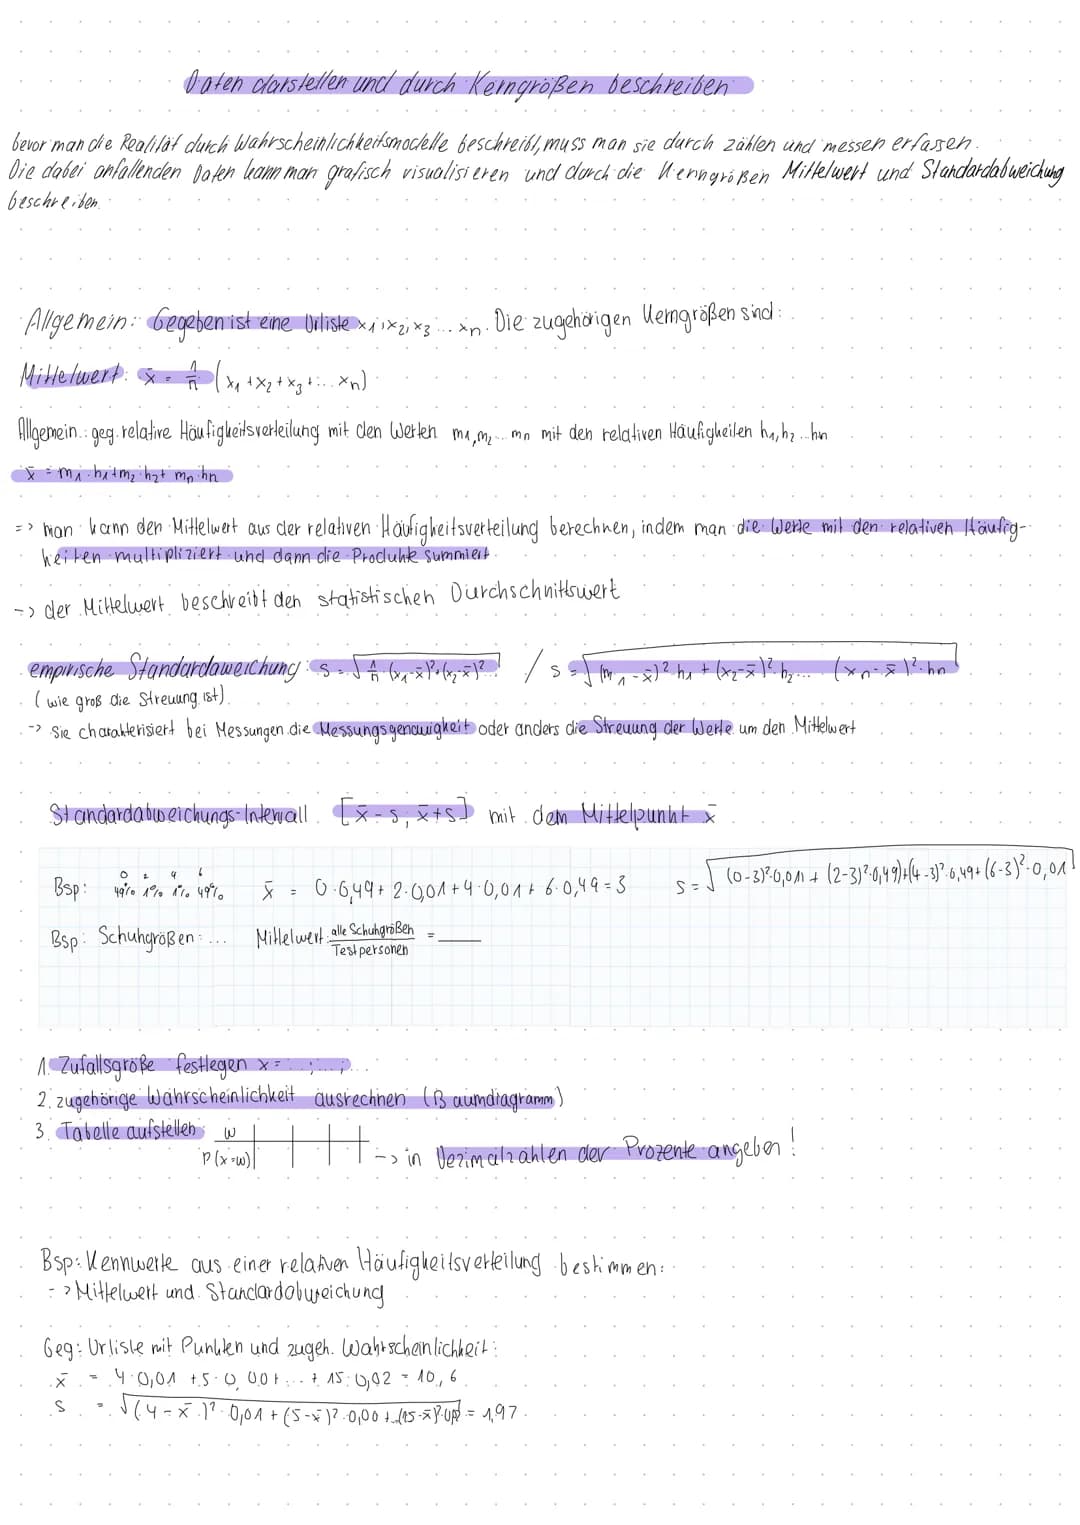 Daten darstellen und durch Kerngrößen beschreiben
bevor man die Realität durch Wahrscheinlichkeitsmodelle beschreibt, muss man sie durch zählen und messen erfassen.
Die dabei anfallenden Daten kann man grafisch visualisieren und durch die Kenngrößen Mittelwert und Standardabweichung
beschreiben.
Allgemein: Gegeben ist eine Urliste x₁; x₂; x₃ ... xn. Die zugehörigen Kerngrößen sind:
Mittelwert: x̄ = 1/n (x₁ + x₂ + x₃ + ... xn)
Allgemein: geg. relative Häufigkeitsverteilung mit den Werten m₁, m₂ ... mn mit den relativen Häufigkeiten h₁, h₂ ... hn
x̄ = m₁ · h₁ + m₂ · h₂ + mn · hn
=> man kann den Mittelwert aus der relativen Häufigkeitsverteilung berechnen, indem man die Werte mit den relativen Häufig-
keiten multipliziert und dann die Produkte summiert.
-> der Mittelwert beschreibt den statistischen Durchschnittswert
empirische Standardaweichung: s = √(1/n · (x₁-x̄)² + (x₂-x̄)² ...) / s = √((m₁-x̄)² · h₁ + (x₂-x̄)² · h₂ ... (xn-x̄)² · hn)
(wie groß die Streuung ist)
-> Sie charakterisiert bei Messungen die Messungsgenauigkeit oder anders die Streuung der Werte um den Mittelwert
Standardabweichungs-Intervall [x̄ - s; x̄ + s] mit dem Mittelpunkt x̄
0 2 4 6
Bsp: 49% 1% 1% 49% x̄ = 0·0,49 + 2·0,01 + 4·0,01 + 6·0,49 = 3 s = √((0-3)²·0,01 + (2-3)²·0,49) + (4-3)²·0,49 + (6-3)²·0,01
Bsp: Schuhgrößen: ... Mittelwert: alle Schuhgrößen / Testpersonen = ____
1. Zufallsgröße festlegen x = ...; ...; ...
2. zugehörige Wahrscheinlichkeit ausrechnen (Baumdiagramm)
3. Tabelle aufstellen: w
P(x=w) -> in Dezimalzahlen der Prozente angeben!
Bsp: Kennwerte aus einer relativen Häufigkeitsverteilung bestimmen:
-> Mittelwert und Standardabweichung
Geg: Urliste mit Punkten und zugeh. Wahrscheinlichkeit:
x̄ = 4·0,01 + 5·0,00 + ... + 15·0,02 = 10,6
s = √((4-x̄)²·0,01 + (5-x̄)²·0,00 + ... (15-x̄)²·0,02) = 1,97